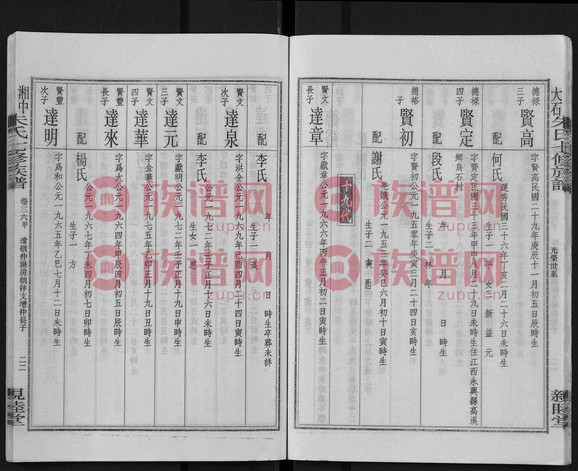 光榮世系
德祿三子
賢高
字賢高民國二十九年庚辰十一月初五日辰時生
配
何氏
民國三十六年丁亥二月二十六日未時生
生子二
新
益
女二
元
德祿四子
賢定
字賢定民國三十三年甲申八月二十日未時生住江西永興縣高溪鄉烏石村
配
段氏
年
月
日
時生
生子二
林
年
德裕子
賢初
字賢初公元一九五零年庚寅三月二十四日寅時生
配
謝氏
公元一九五三年癸巳六月初十日寅時生
生子二
寅
酉
十九代
賢文長子
達章
字獻章公元一九六二年壬寅四月初二日寅時生
配
賢文次子
達泉
字洪全公元一九六九年己酉四月二十四日寅時生
配
李氏
年
月
日
時生卒葬未詳
生子一
漢
李氏
公元一九七一年
時生
生女一
思
賢文三子
達元
字獻明公元一九七二年壬子正月十九日申時生
賢文四子
達華
字
公元一九七五年乙卯正月十九日丑時生
賢豐長子
達來
字爲本公元一九六四年甲辰四月初五日辰時生
配
楊氏
公元一九六七年丁未四月初七日卯時生
生子一
方
賢豐次子
達明
字爲和公元一九六五年乙巳七月十二日未時生
湘中朱氏七修族譜
卷二六甲
二二
親睦堂
族谱网
zupu.cn